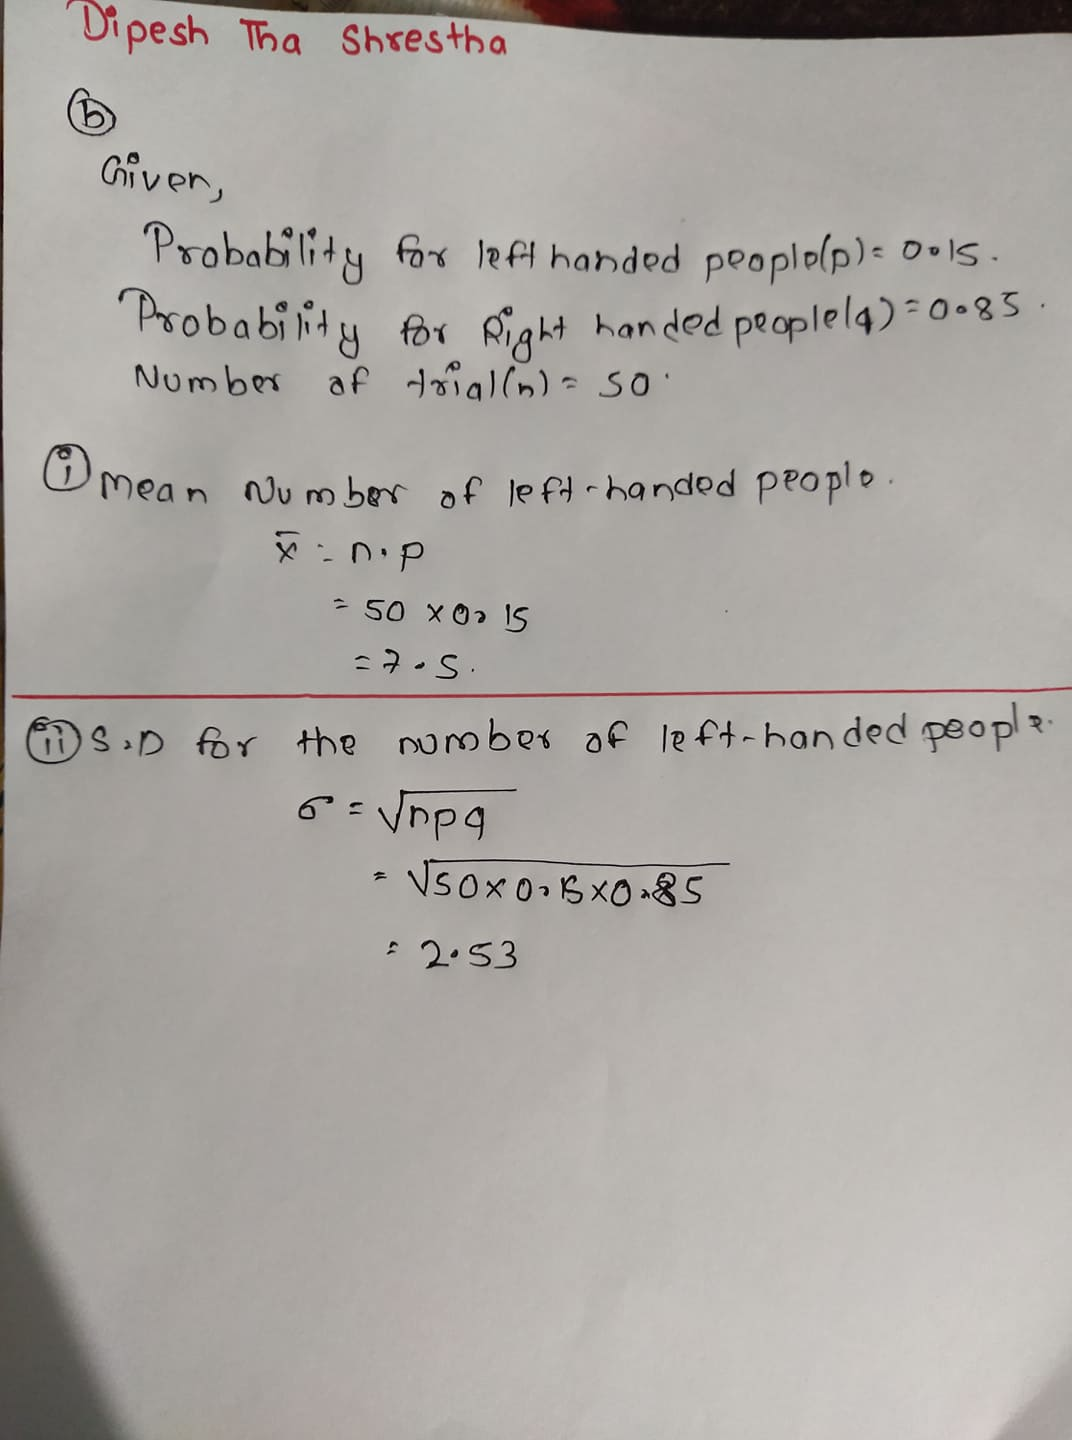 Dipesh Tha Shrestha
(b)
Given,
Probability for left handed people(p) = 0.15.
Probability for Right handed people(q) = 0.85.
Number of trial(n) = 50.
(i) Mean Number of left-handed people.
x̄ = n.p
= 50 × 0.15
= 7.5.
(ii) S.D for the number of left-handed people.
σ = √npq
= √50×0.15×0.85
= 2.53